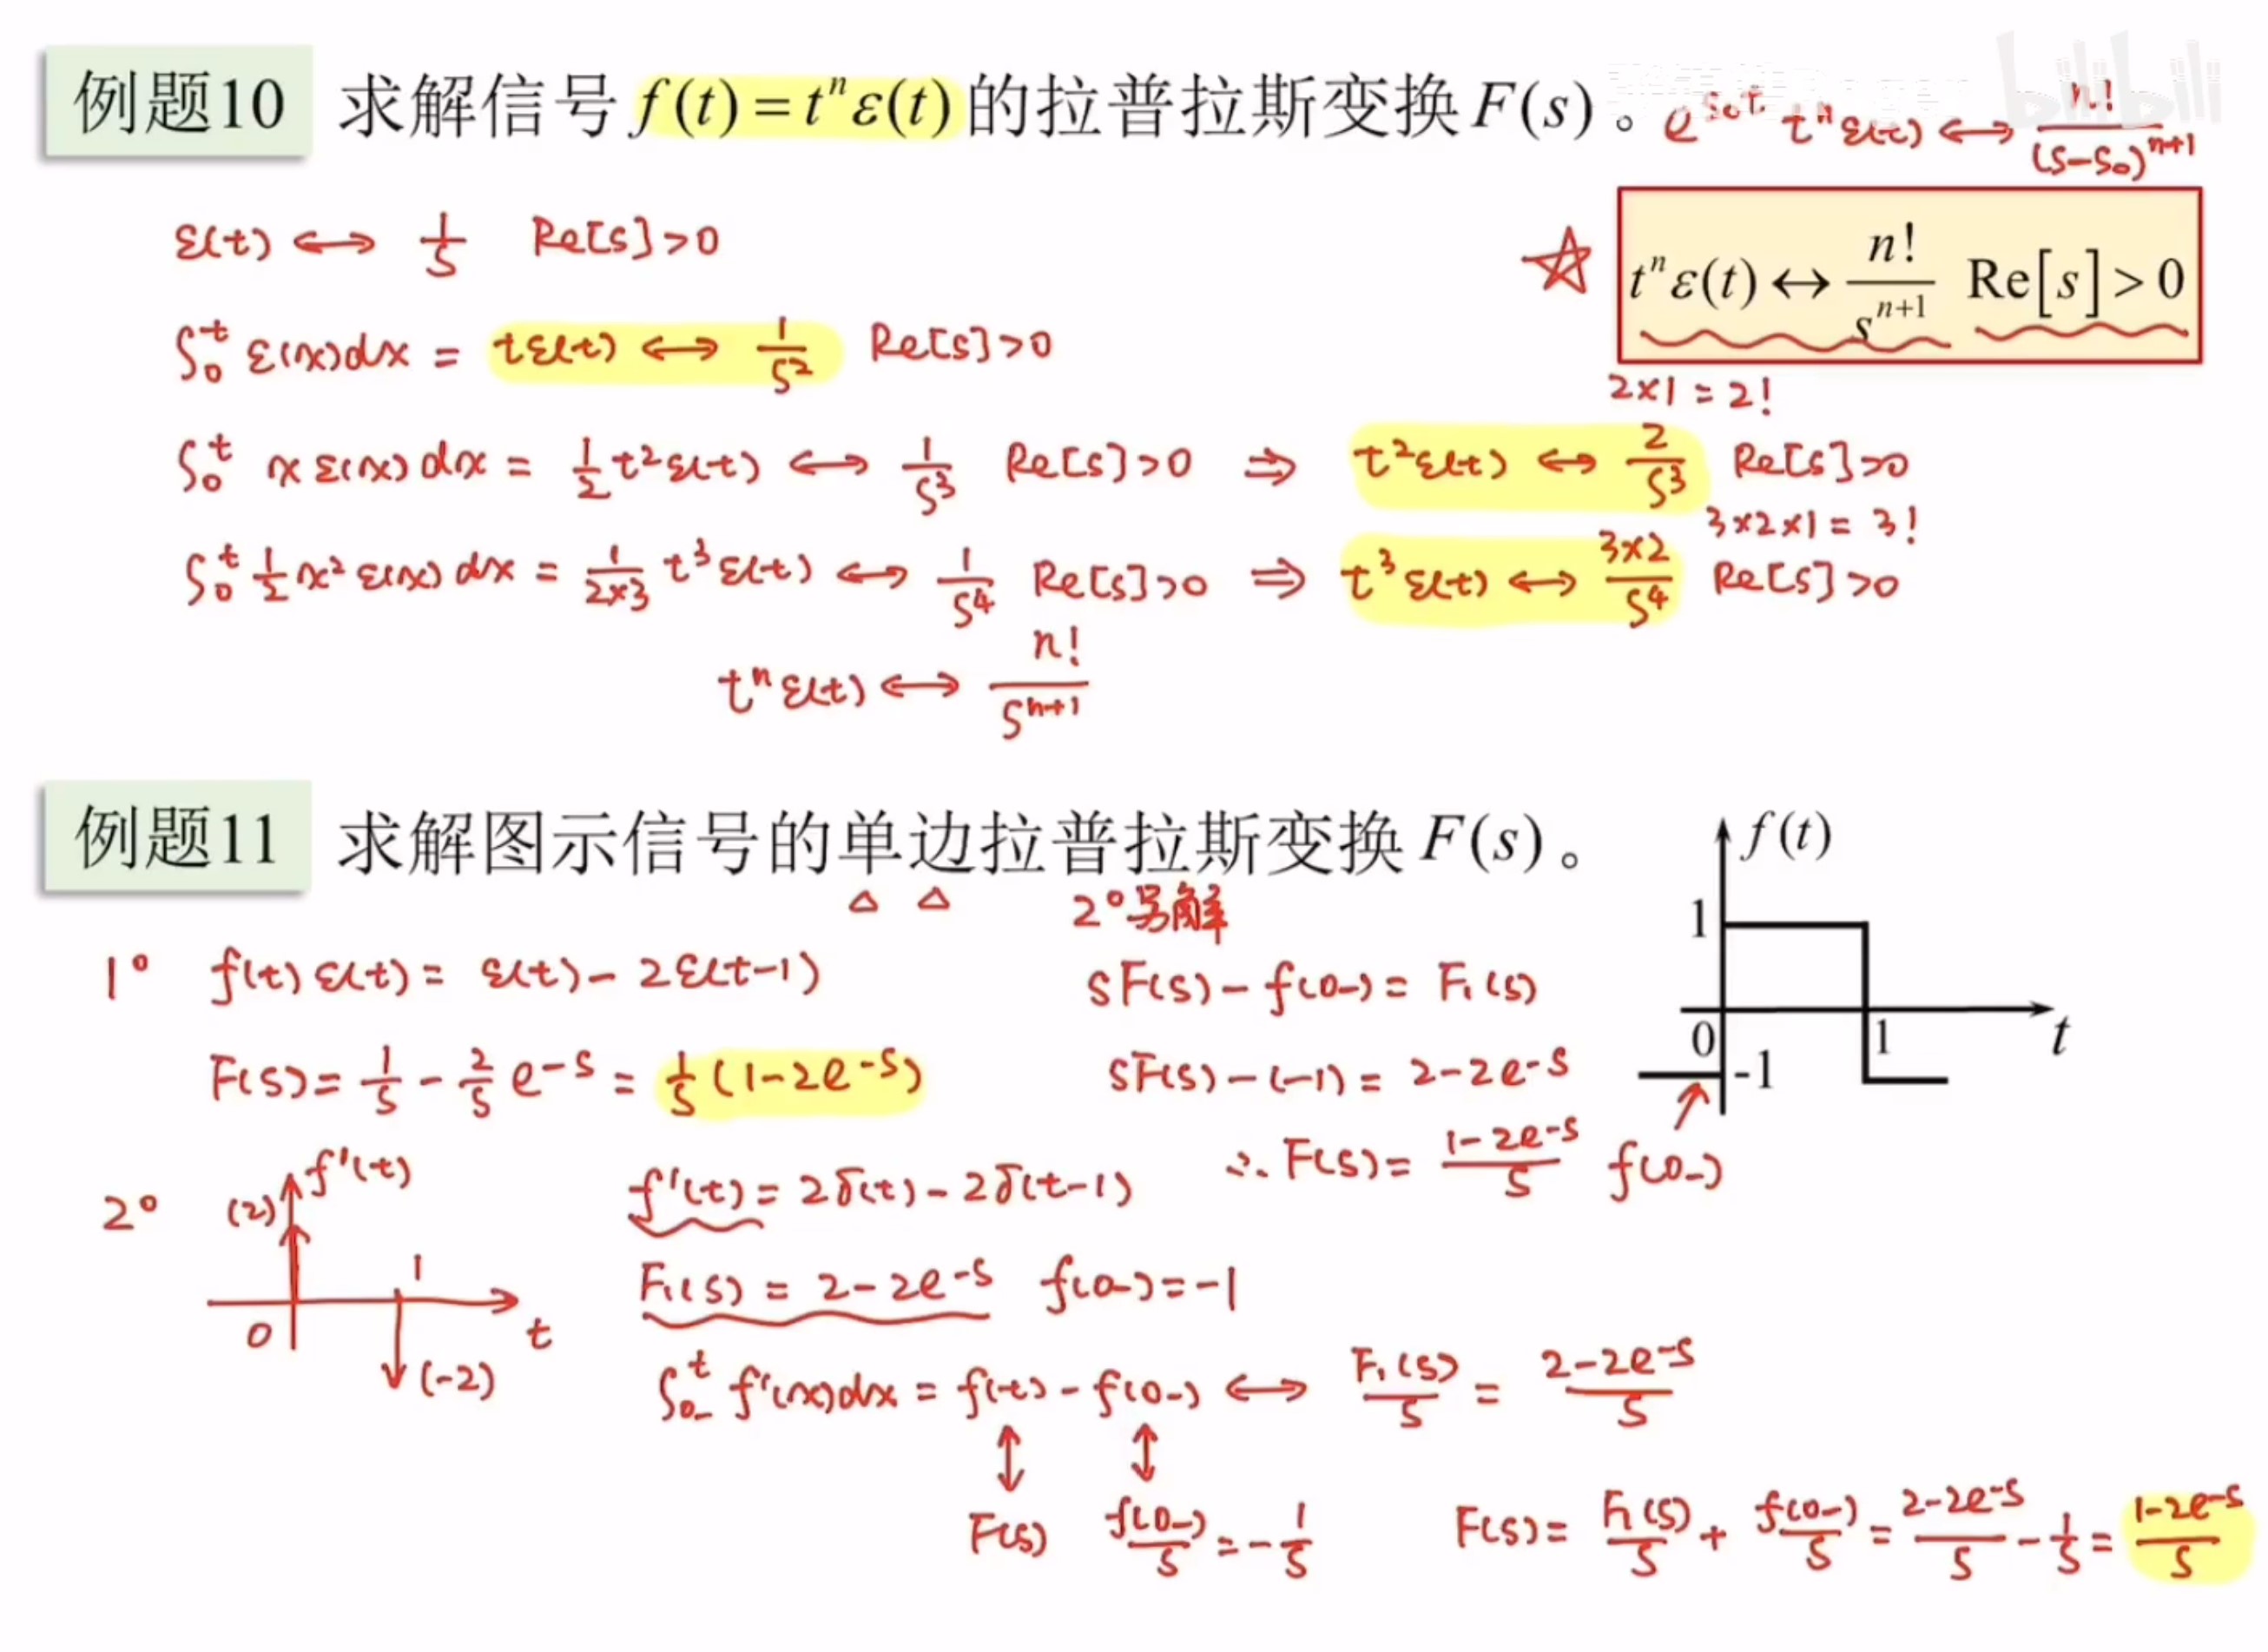 例题10 求解信号 f(t) = tⁿε(t) 的拉普拉斯变换 F(s) 。
bilibili
e^{s₀t} tⁿε(t) ↔ n!/(s-s₀)^{n+1}
ε(t) ↔ 1/s Re[s]>0
tⁿε(t) ↔ n!/s^{n+1} Re[s] > 0
∫₀ᵗ ε(x)dx = tε(t) ↔ 1/s² Re[s]>0
2×1=2!
∫₀ᵗ xε(x)dx = 1/2 t²ε(t) ↔ 1/s³ Re[s]>0 ⇒ t²ε(t) ↔ 2/s³ Re[s]>0
3×2×1=3!
∫₀ᵗ 1/2 x²ε(x)dx = 1/(2×3) t³ε(t) ↔ 1/s⁴ Re[s]>0 ⇒ t³ε(t) ↔ 3×2/s⁴ Re[s]>0
tⁿε(t) ↔ n!/s^{n+1}
例题11 求解图示信号的单边拉普拉斯变换 F(s) 。
f(t)
1
0
1
t
-1
f(0₋)
1° f(t)ε(t) = ε(t) - 2ε(t-1)
F(s) = 1/s - 2/s e^{-s} = 1/s (1-2e^{-s})
2°另解
sF(s) - f(0₋) = F₁(s)
sF(s) - (-1) = 2-2e^{-s}
∴ F(s) = (1-2e^{-s})/s
2°
f'(t)
(2)
1
0
t
(-2)
f'(t) = 2δ(t) - 2δ(t-1)
F₁(s) = 2-2e^{-s} f(0₋) = -1
∫₀₋ᵗ f'(x)dx = f(t) - f(0₋) ↔ F₁(s)/s = (2-2e^{-s})/s
F(s) f(0₋)/s = -1/s
F(s) = F₁(s)/s + f(0₋)/s = (2-2e^{-s})/s - 1/s = (1-2e^{-s})/s